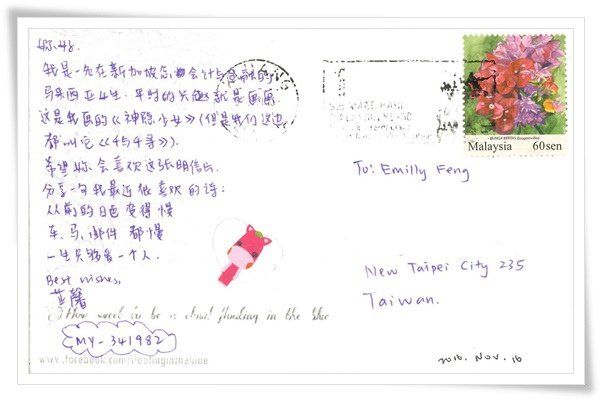 妳好.
我是一名在新加坡念会计与金融的
马来西亚女生. 平时的兴趣就是画画.
这是我画的《神隐少女》(但是我们这边
都叫它《千与千寻》).
希望妳会喜欢这张明信片.
分享一句我最近很喜欢的诗:
从前的日色变得慢
车、马、邮件都慢
一生只够爱一个人.
Best wishes,
芷馨
How sweet to be a cloud floating in the blue
MY-341982
www.facebook.com/floatinginthebue
BUNGA KERTAS Bougainvillea
Malaysia 60sen
To: Emilly Feng
New Taipei City 235
Taiwan.
2016. Nov. 16